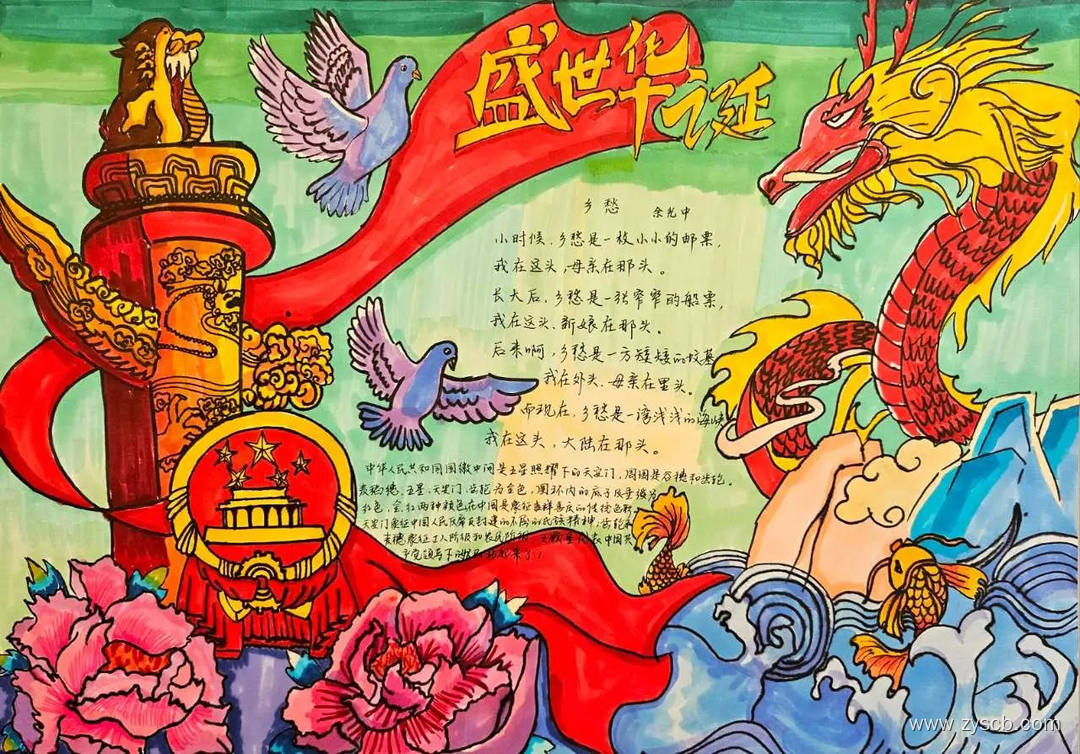 盛世华之诞
乡愁 余光中
小时候,乡愁是一枚小小的邮票,
我在这头,母亲在那头。
长大后,乡愁是一张窄窄的船票,
我在这头,新娘在那头。
后来啊,乡愁是一方矮矮的坟墓
我在外头,母亲在里头。
而现在,乡愁是一湾浅浅的海峡
我在这头,大陆在那头。
中华人民共和国国徽中间是五星照耀下的天安门,周围是谷穗和齿轮。
麦稻穗、五星、天安门、齿轮为金色,圆环内的底子及垂绶为
红色,金、红两种颜色在中国是象征吉祥喜庆的传统色彩。
天安门象征中国人民反帝反封建的不屈的民族精神,齿轮和
麦穗象征工人阶级和农民阶级,五颗星代表中国共
产党领导下的
www.zyscb.com